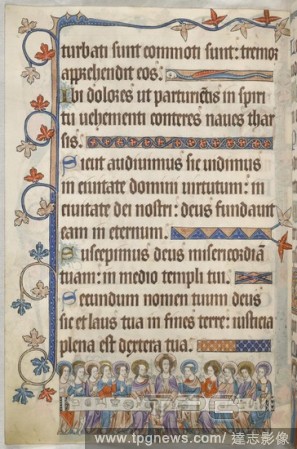 turbati sunt commoti sunt: tremor
apprehendit eos.
Ibi dolores ut parturientis in spiri
tu vehementi conteres naves thar
sis.
Sicut audivimus sic vidimus
in civitate domini virtutum: in
civitate dei nostri: deus fundavit
eam in eternum.
Suscepimus deus misericordiā
tuam: in medio templi tui.
Secundum nomen tuum deus
sic et laus tua in fines terre: iusticia
plena est dextera tua.
www.tpgnews.com/ 達志影像